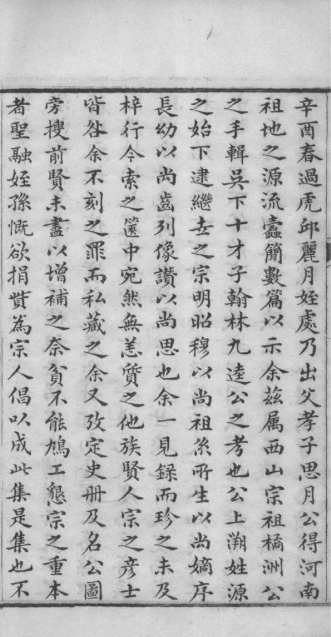 辛酉春過虎邱麗月姪處乃出父孝子思月公得河南
祖地之源流蠹簡數篇以示余茲属西山宗祖橘洲公
之手輯吳下十才子翰林九逵公之考也公上溯姓源
之始下逮繼玄之宗明昭穆以尚祖糸所生以尚嫡序
長幼以尚齒列像讚以尚思也余一見録而珍之未及
梓行今索之篋中宛然無恙質之他族賢人宗之彥士
皆咎余不刻之罪而私藏之余又攷定史册及名公圖
旁搜前賢未盡以增補之奈貧不能鳩工懇宗之重本
者聖融姪孫慨欲捐貲為宗人倡以成此集是集也不